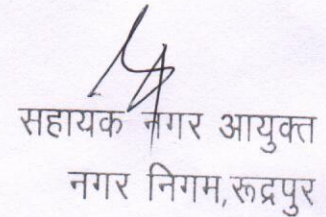 सहायक नगर आयुक्त
नगर निगम,रूद्रपुर